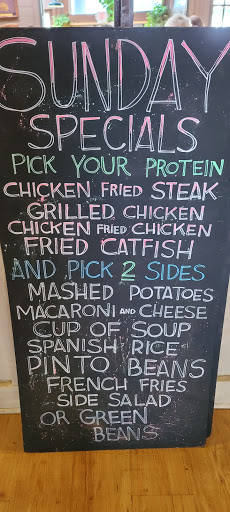 SUNDAY
SPECIALS
PICK YOUR PROTEIN
CHICKEN FRIED STEAK
GRILLED CHICKEN
CHICKEN FRIED CHICKEN
FRIED CATFISH
AND PICK 2 SIDES
MASHED POTATOES
MACARONI AND CHEESE
CUP OF SOUP
SPANISH RICE
PINTO BEANS
FRENCH FRIES
SIDE SALAD
OR GREEN
BEANS